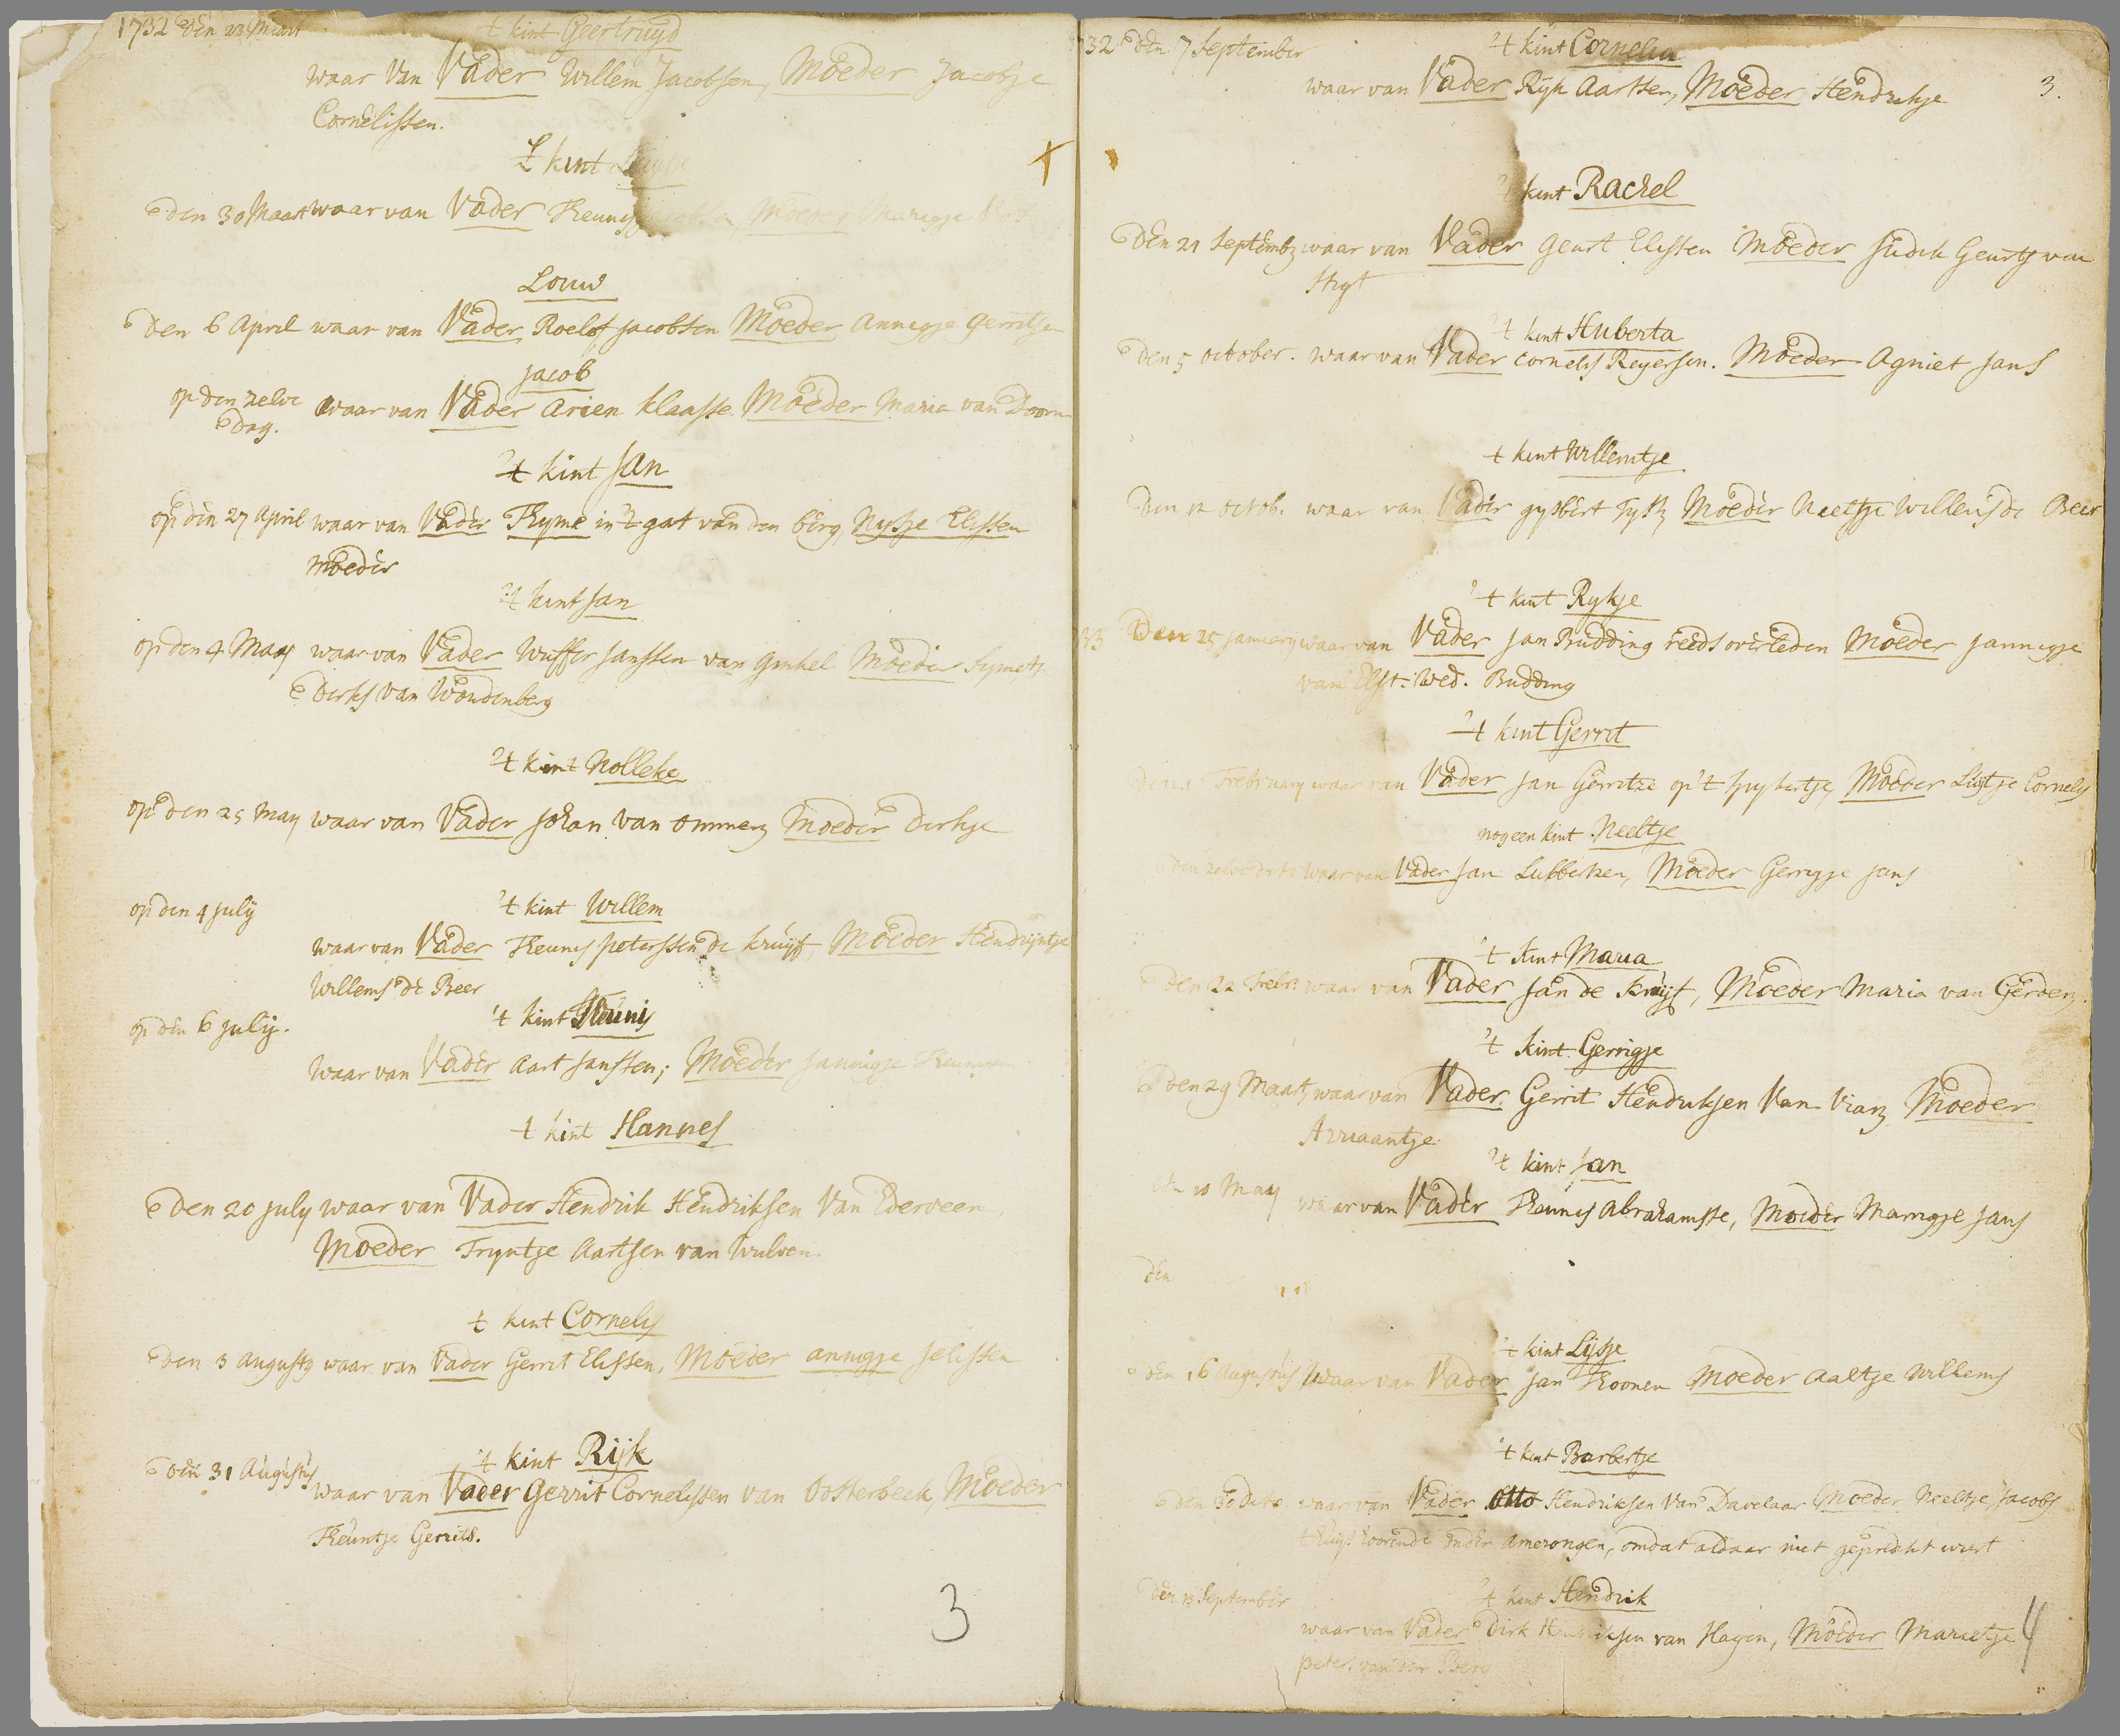 1732 den 23 Maart
't kint Geertruyd
waar van Vader Willem Jacobsen, Moeder Jacobje
Cornelissen.
't kint
den 30 Maart waar van Vader Theunis Moeder Marigje
Louw
den 6 April waar van Vader Roelof Jacobsen Moeder Annigje Gerritse
Jacob
op den zelve
dag.
waar van Vader Arien Klaasse. Moeder Maria van Doorn
't kint Jan
op den 27 April waar van Vader Thyme in 't gat van den berg, Nysje Elissen
Moeder
't kint Jan
op den 4 Maay waar van Vader Wuffer Janssen van Ginkel Moeder
Dirks van Woudenberg
't kint Nolleke
op den 25 May waar van Vader Johan van Ommerz Moeder Dirkje
op den 4 july
't kint Willem
waar van Vader Theunis peterssen de kruijf, Moeder Hendrijntje
Willems de Beer
op den 6 july.
't kint Theunis
Waar van Vader Aart Janssen; Moeder Jannigje
't kint Hannes
den 20 july waar van Vader Hendrik Hendriksen Van Ederveen
Moeder Tryntje Aartsen van Wulven.
't kint Cornelis
den 3 augusts waar van Vader Gerrit Elissen, Moeder annigje Jelissen
't kint Rijk
den 31 Augustus
waar van Vader Gerrit Cornelissen van Oosterbeek, Moeder
Theuntje Gerrits.
3
32 den 7 September
't kint Cornelia
waar van Vader Ryk Aartsen, Moeder Hendrikje
3.
't kint Rachel
Den 21 Septembz waar van Vader Geurt Elissen Moeder Judik Geurts van
Stigt
't kint Huberta
den 5 october. waar van Vader Cornelis Reyersen. Moeder Agniet Jans
't kint Willemtje
Den 12 octob. waar van Vader gysbert Moeder Neeltje Willems de Beer
't kint Rykje
33 Den 25 january waar van Vader Jan Budding reeds overleden Moeder Jannigje
van Elst. Wed. Budding
't kint Gerrit
Den 1 February waar van Vader Jan Gerritze op 't Moeder Lijsje Cornelis
nog een kint Neeltje
den zelve dito waar van Vader Jan Lubbertzen, Moeder Gerrigje Jans
't kint Maria
den 22 Febr: waar van Vader Jan de Kruijf, Moeder Maria van Gerden.
't kint Gerrigje
den 29 Maart waar van Vader Gerrit Hendriksen Van Vianz Moeder
Arriaantje
't kint Jan
den 10 May waar van Vader Theunis Abrahamsse, Moeder Marrigje Jans
den
't kint Lijsje
den 16 Augustus Waar van Vader Jan Thoonen Moeder Aaltje Willems
't kint Barbertje
den 30 dito waar van Vader Otto Hendriksen Van Davelaar Moeder Neeltje Jacobs
onder Amerongen, omdat aldaar niet gepredikt wiert
Den 13 September
't kint Hendrik
waar van Vader Dirk Hendriksen van Hagen, Moeder Marretje
peters van den Berg
4